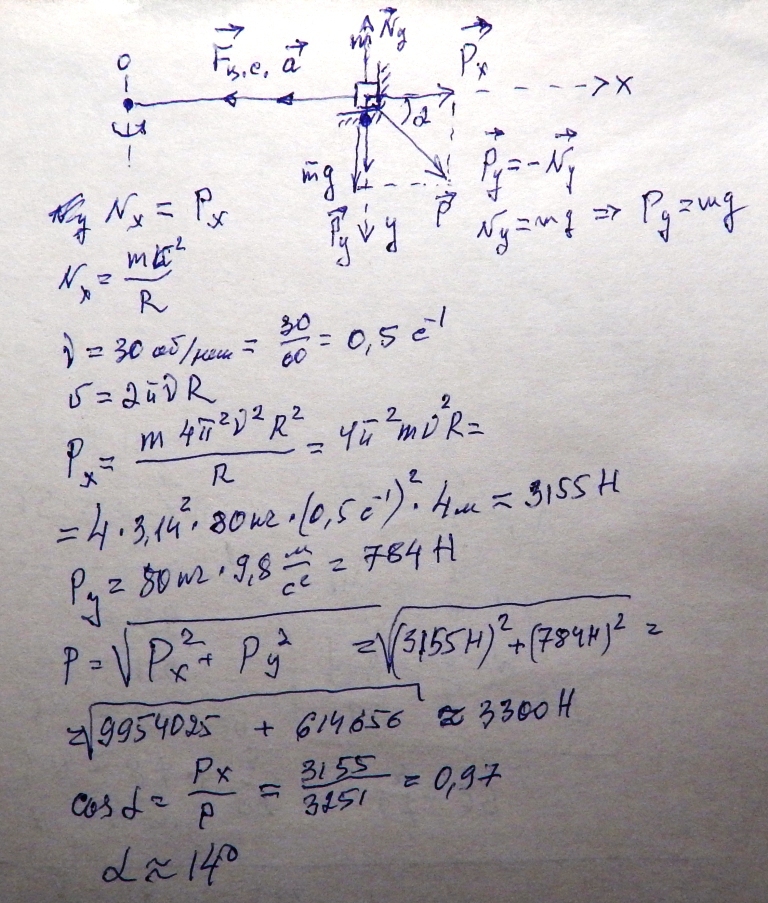 O
F⃗ц.с. a⃗
m N⃗y
P⃗x
x
α
m̄g
P⃗y y
P⃗
P⃗y = -N⃗y
Ny = mg => Py = mg
Nx = Px
Nx = mv²/R
ν = 30 об/мин = 30/60 = 0,5 c⁻¹
v = 2πνR
Px = m 4π²ν²R²/R = 4π²mν²R =
= 4 · 3,14² · 80кг · (0,5 c⁻¹)² · 4м = 3155 Н
Py = 80кг · 9,8 м/c² = 784 Н
P = √(Px² + Py²) = √((3155Н)² + (784Н)²) =
= √(9954025 + 614656) ≈ 3300 Н
cos α = Px/P = 3155/3251 = 0,97
α ≈ 14°